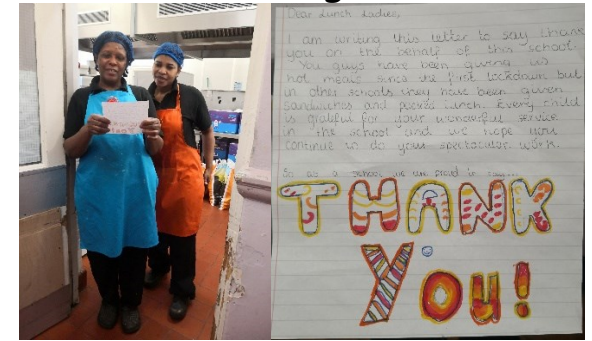 Dear Lunch Ladies,
I am writing this letter to say thank
you on the behalf of this school.
You guys have been giving us
hot meals since the first lockdown but
in other schools they have been given
sandwiches and packed lunch. Every child
is grateful for your wonderful service
in the school and we hope you
continue to do your spectacular work.
So as a school we are proud to say.......
THANK
YOU!